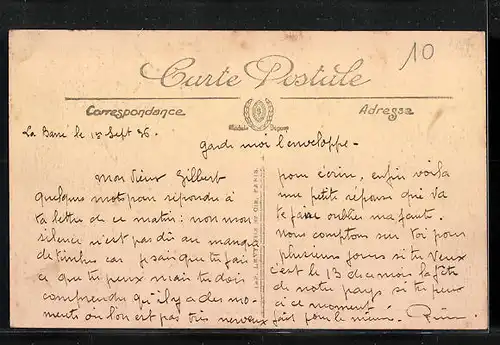 10
Carte Postale
Correspondance
Adresse
Médaille Deposé
La Barre le 15 Sept 36.
garde moi l'enveloppe -
mon vieux Gilbert
quelques mots pour répondre à
ta lettre de ce matin: non mon
silence n'est pas dû au manque
de timbre car je sais que tu fais
ce que tu peux mais tu dois
comprendre qu'il y a des mo-
ments ou l'on est pas très nerveux
pour écrire, enfin voilà
une petite réponse qui va
te faire oublier ma faute.
nous comptons sur toi pour
plusieurs jours si tu veux
c'est le 13 de ce mois la fête
de notre pays si tu peux
ici ce moment
fait pour le mieux.
IMP. LEVY FILS ET CIE, PARIS